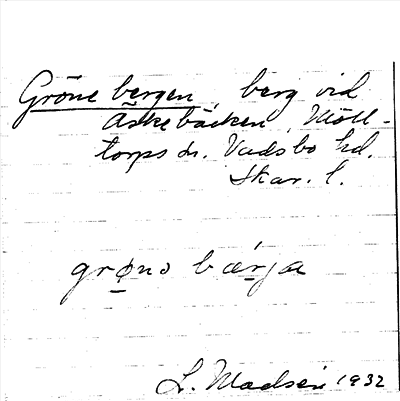 Gröne bergen, berg vid
Äskebäcken, Möll-
torps sn. Vadsbo hd.
Skar. l.
grønə bærja
L. Madsén 1932